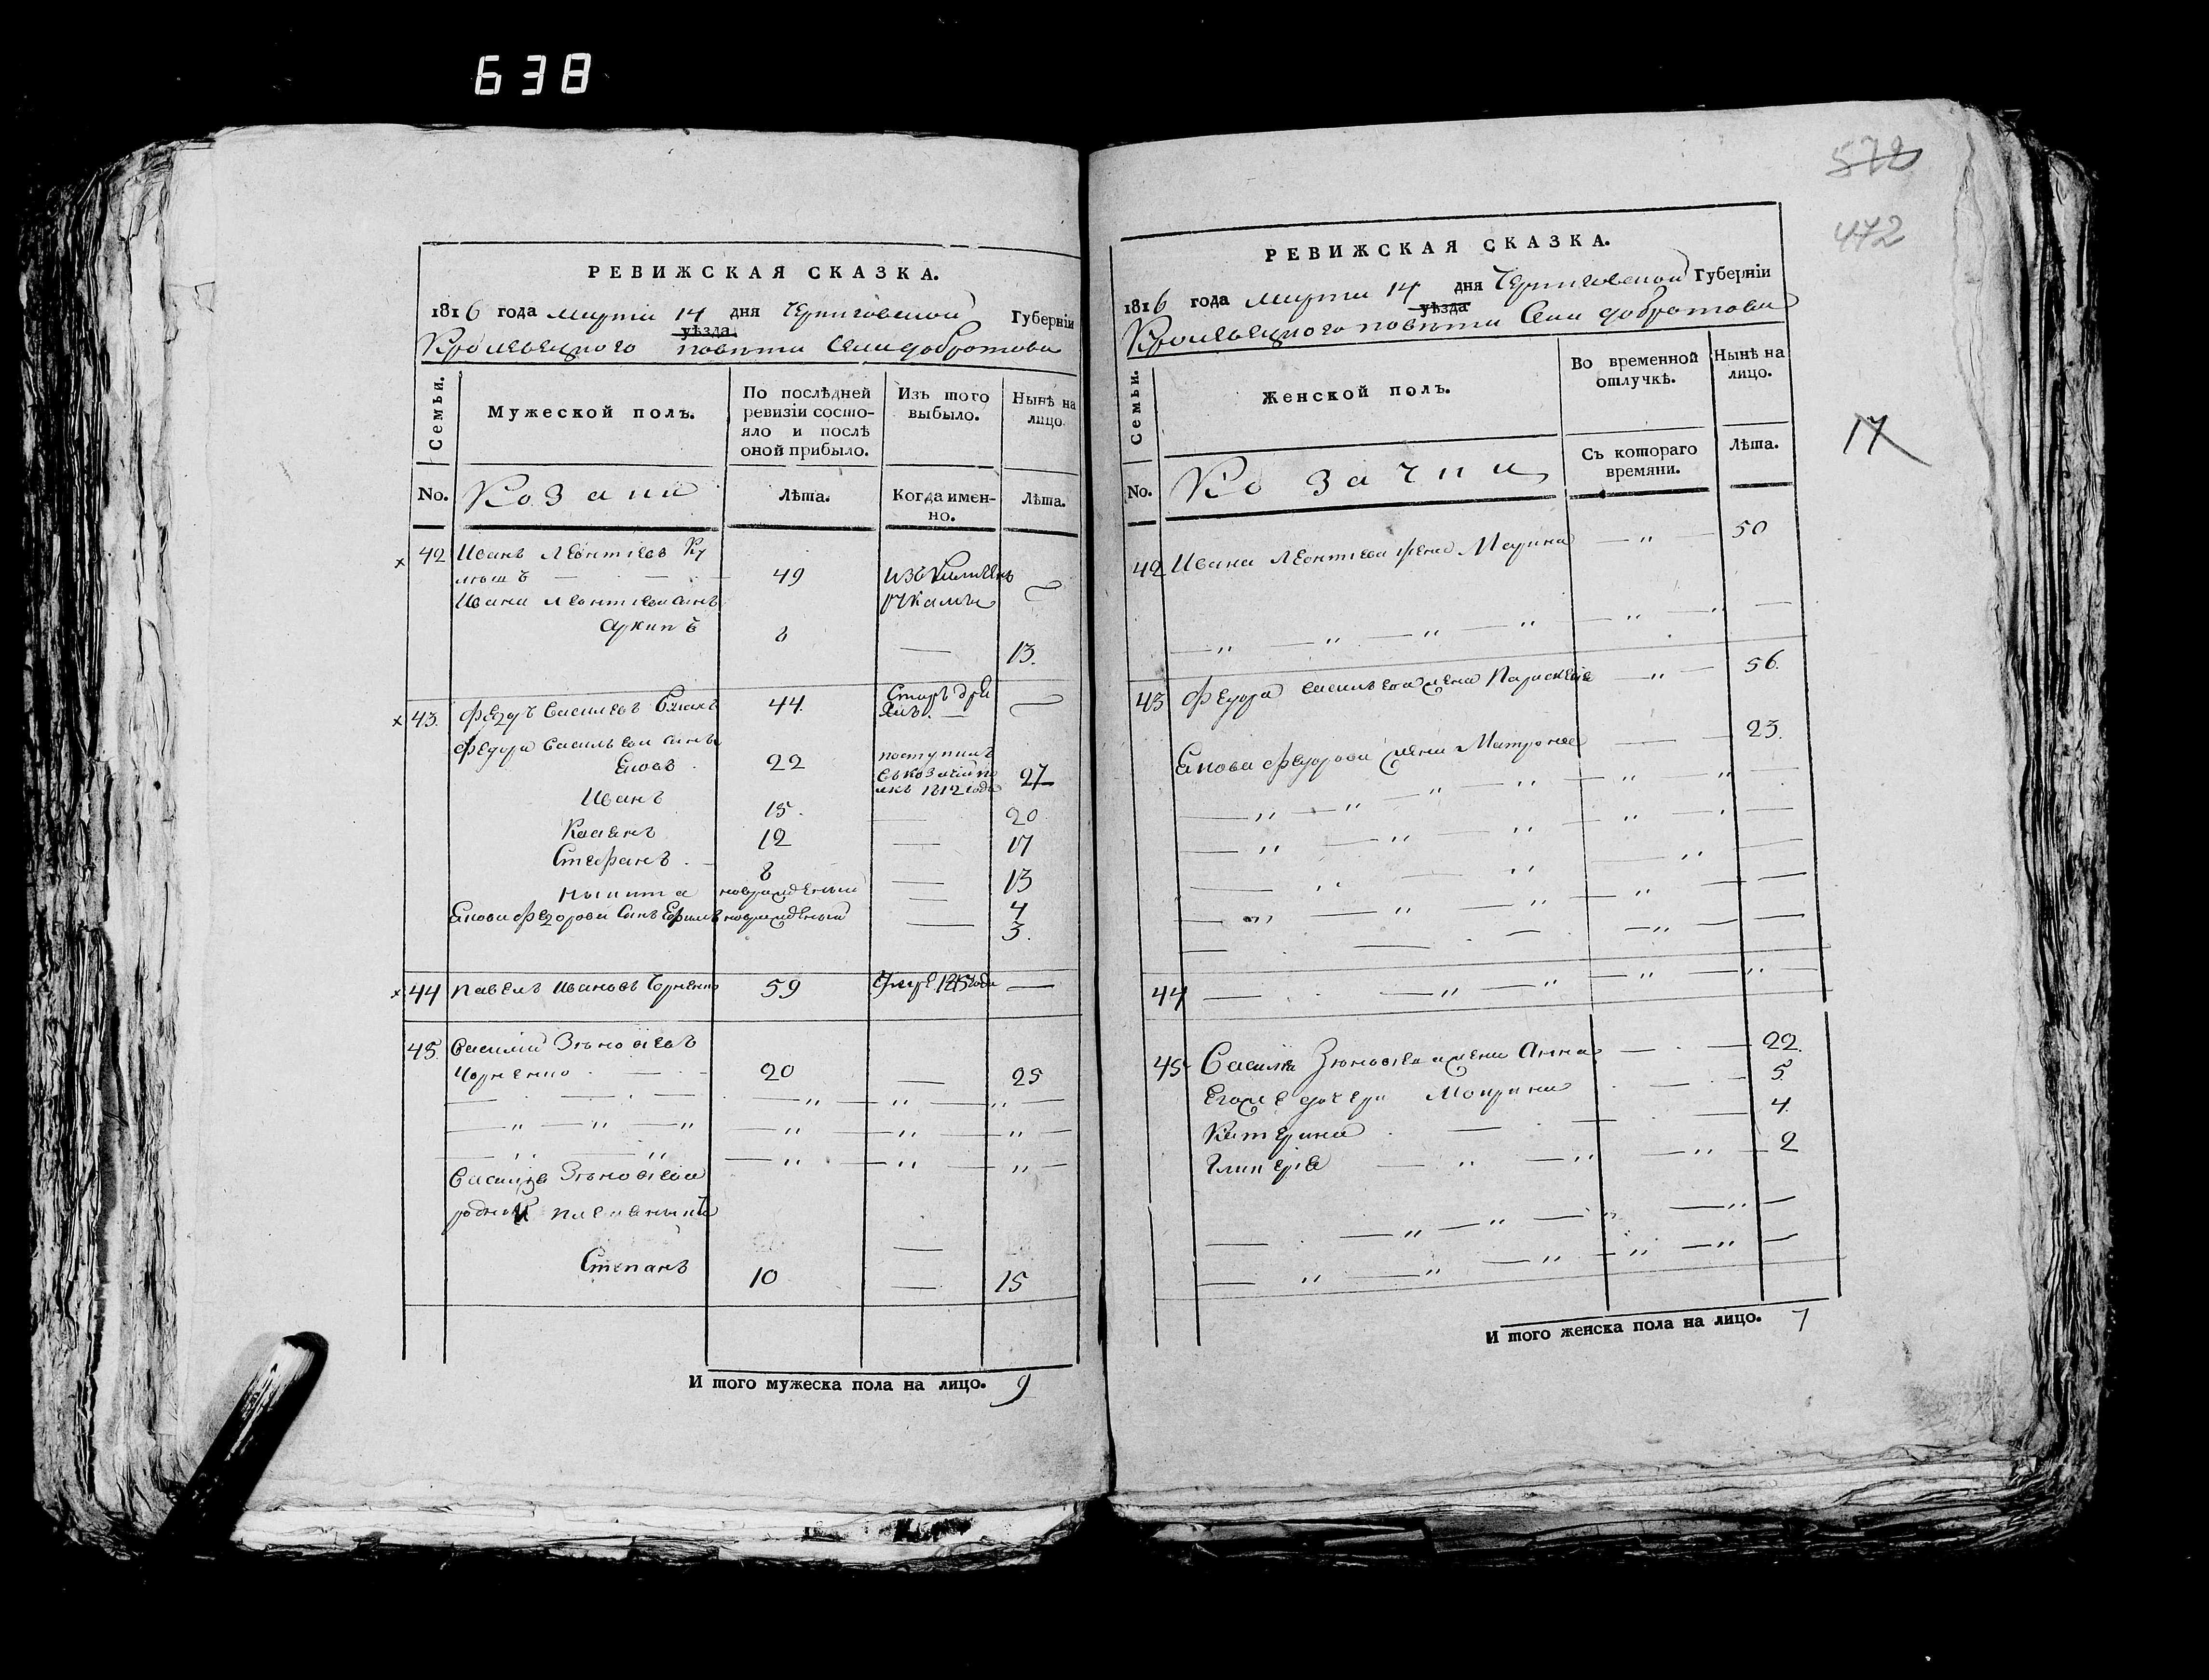 638
РЕВИЖСКАЯ СКАЗКА.
1816 года марта 14 дня Черниговской Губерніи
уѣзда
Кролевецкого повѣта Села добротова
Семьи.
Мужеской полъ.
По послѣдней ревизіи состояло и послѣ оной прибыло.
Изъ того выбыло.
Нынѣ на лицо.
No.
Козаки
Лѣта.
Когда именно.
Лѣта.
42 Иванъ Леонтіевъ
49
Ивана Леонтіева синъ
Архипъ 8 — 13.
43. Федоръ Василевъ 44.
Федора Васильева сины
Яковъ 22 поступилъ
въ козачій по
лкъ 1812 года 27
Иванъ 15. — 20
Касянъ 12 — 17
Стефанъ 8 — 13
Никита новорожденный — 4
Якова Федорова синъ Ефимъ новорожденный — 3.
44 Павелъ Ивановъ Чорненко 59 —
45. Василій Зѣновіевъ
Чорненко 20 — 25
Василія Зѣновіева
племянникъ
Степанъ 10 — 15
И того мужеска пола на лицо. 9
572
472
17
РЕВИЖСКАЯ СКАЗКА.
1816 года марта 14 дня Черниговской Губерніи
уѣзда
Кролевецкого повѣта Села добротова
Семьи.
Женской полъ.
Во временной отлучкѣ.
Нынѣ на лицо.
No.
Козачки
Съ котораго времяни.
Лѣта.
42 Ивана Леонтіева жена Марина — " — 50
43 Федора васильева жена Параскевія — " — 56.
Якова Федорова жена Матрона — 23.
44
45 Василія Зѣновіева жена Анна — 22.
Егоже дочери 5
Катерина 4.
Гликерія 2
И того женска пола на лицо. 7